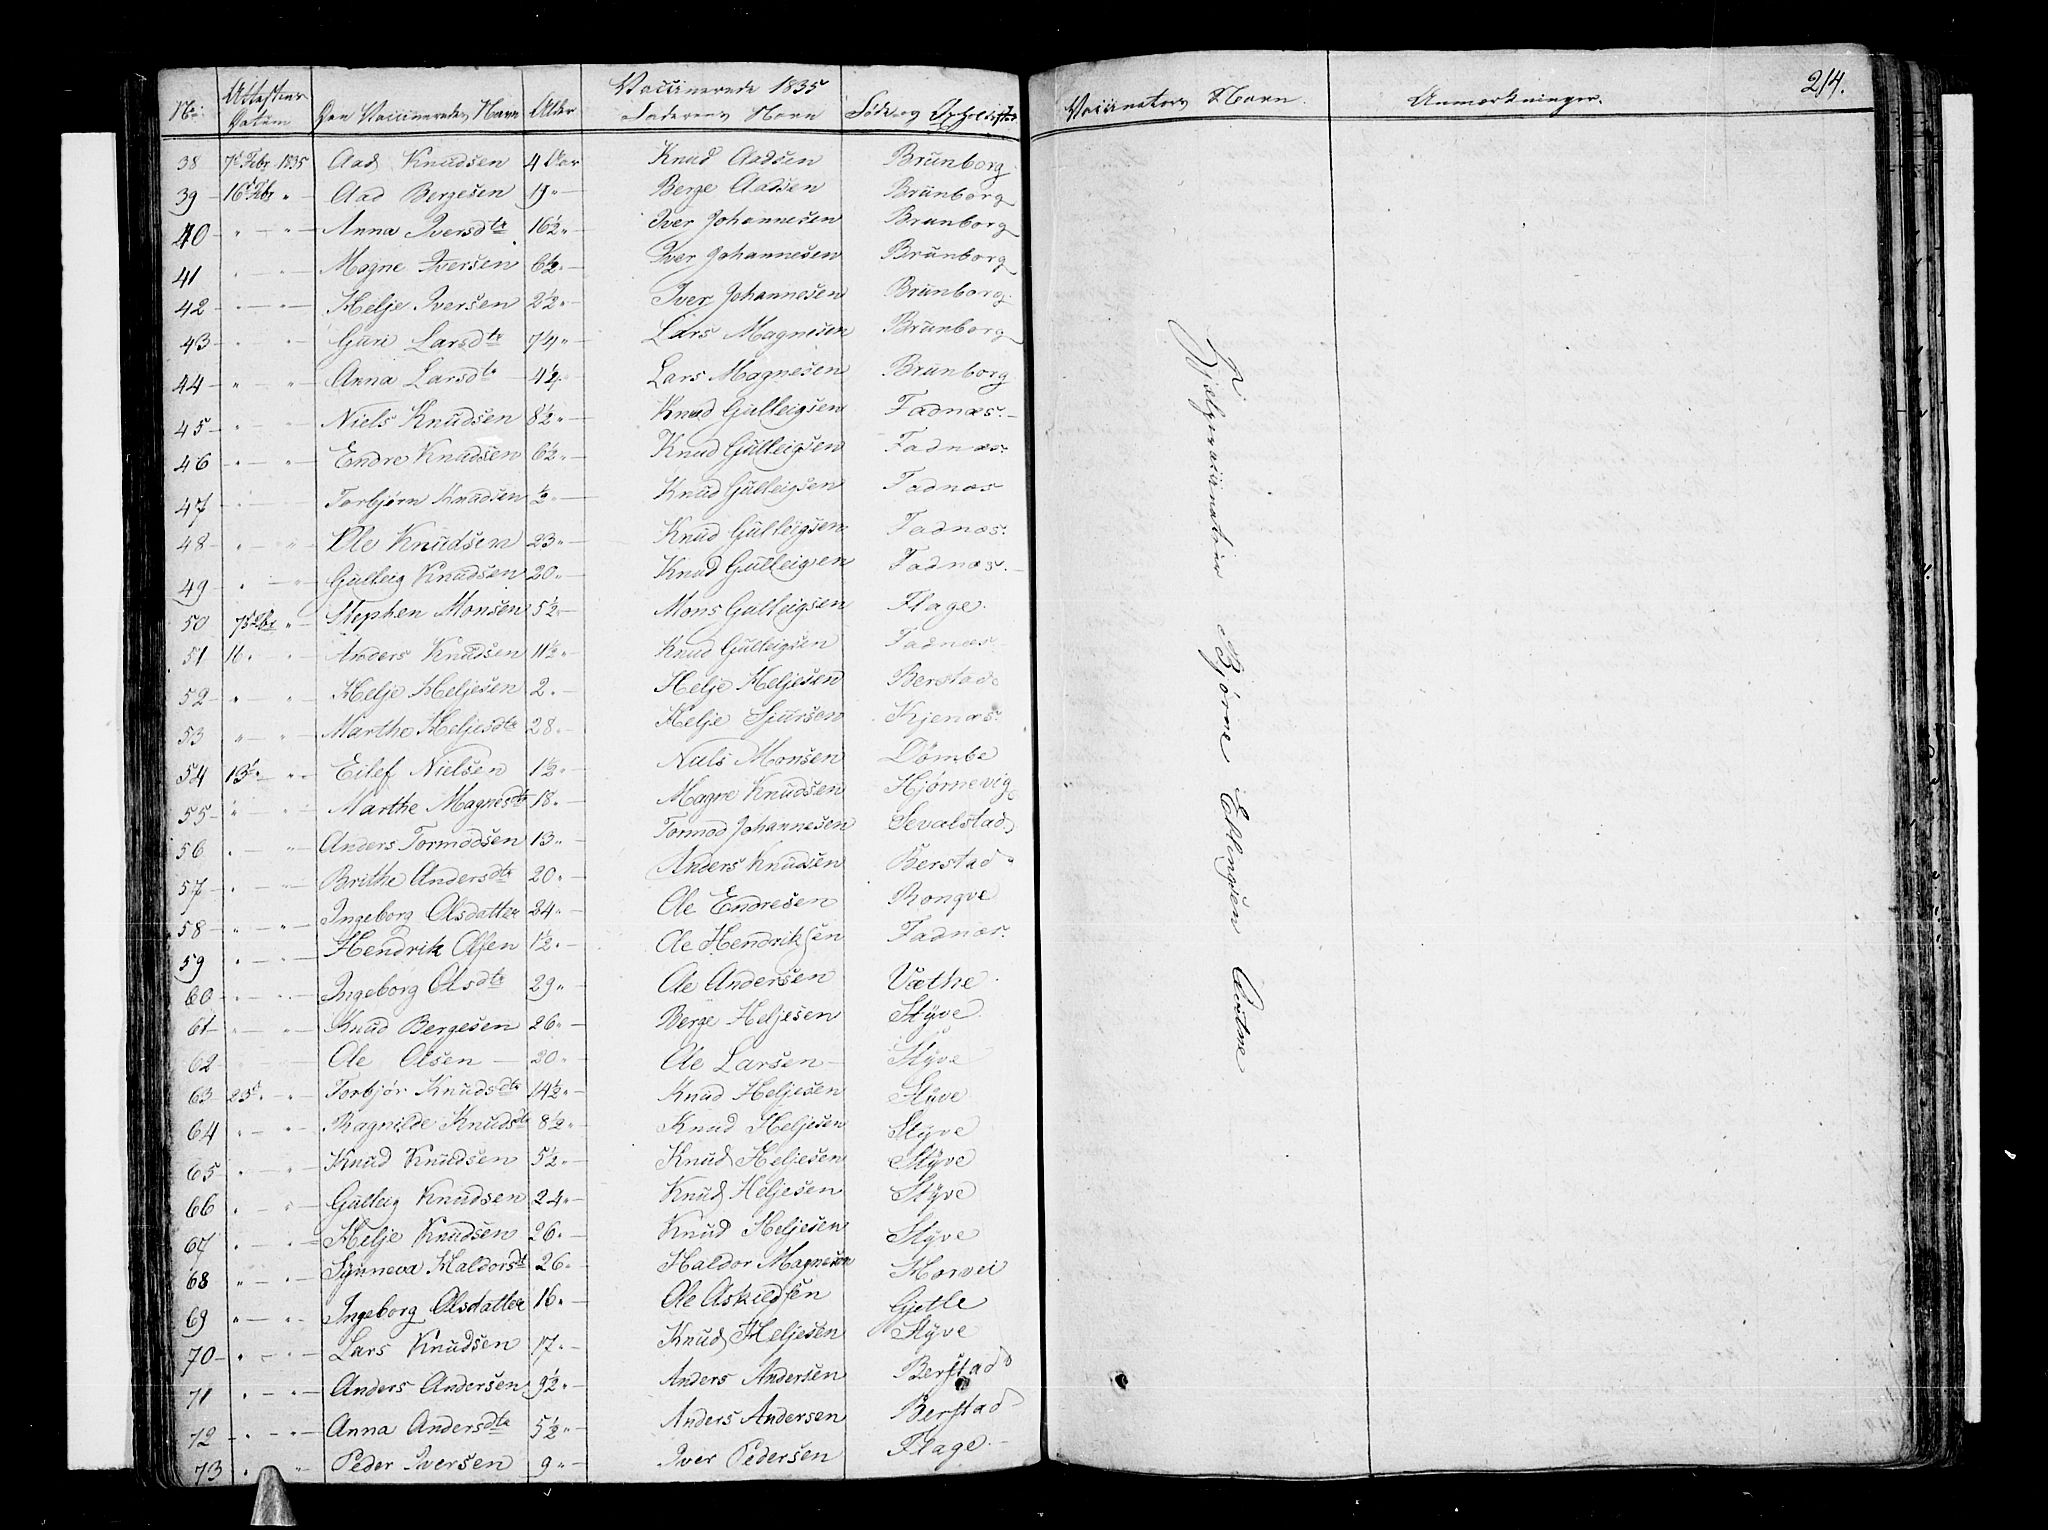 Vaccinerede 1835
No: Attestens Datum Den Vaccineredes Navn Alder Faderens Navn Føde og Opholdssted
38 7de Febr 1835 Aad Knudsen 4 Aar Knud Aadsen Brunborg
39 16de Febr " Aad Bergesen 19 " Berge Aadsen Brunborg
40 " " Anna Iversdtr 16½ " Iver Johannesen Brunborg
41 " " Magne Iversen 6½ " Iver Johannesen Brunborg
42 " " Helje Iversen 2½ " Iver Johannesen Brunborg
43 " " Guri Larsdtr 7¼ " Lars Magnesen Brunborg
44 " " Anna Larsdtr 4½ " Lars Magnesen Brunborg
45 " " Niels Knudsen 8½ " Knud Gulleigsen Fadnæs
46 " " Endre Knudsen 6½ " Knud Gulleigsen Fadnæs
47 " " Torbjørn Knudsen ½ " Knud Gulleigsen Fadnæs
48 " " Ole Knudsen 23 " Knud Gulleigsen Fadnæs
49 " " Gulleig Knudsen 20 " Knud Gulleigen Fadnæs
50 7de Febr " Stephen Monsen 5½ Mons Gulleigsen Flage
51 16 " " Anders Knudsen 11½ " Knud Gulleigsen Fadnæs
52 " " Helje Heljesen 2 " Helje Heljesen Berstad
53 " " Marthe Heljesdtr 28 " Helje Sjursen Kjenæs
54 13de " " Eilef Nielsen 1½ " Niels Monsen Dømbe
55 " " Marthe Magnesdtr 18 " Magne Knudsen Hjørnevig
56 " " Anders Tormodsen 13 " Tormod Johannesen Sevalstad
57 " " Brithe Andersdtr 20 " Anders Knudsen Berstad
58 " " Ingeborg Olsdatter 24 " Ole Endresen Rongve
59 " " Hendrik Olsen 1½ " Ole Hendriksen Fadnæs
60 " " Ingeborg Olsdtr 29 " Ole Andersen Væthe
61 " " Knud Bergesen 26 " Berge Heljesen Styve
62 " " Ole Olsen 20 " Ole Larsen Styve
63 25de " " Torbjør Knudsdtr 14½ " Knud Heljesen Styve
64 " " Ragnilde Knudsdtr 8½ " Knud Heljesen Styve
65 " " Knud Knudsen 5½ " Knud Heljesen Styve
66 " " Gulleig Knudsen 24 " Knud Heljesen Styve
67 " " Helje Knudsen 26 " Knud Heljesen Styve
68 " " Synneva Haldorsdtr 26 " Haldor Magnesen Horvei
69 " " Ingeborg Olsdatter 16 " Ole Askildsen Gjetle
70 " " Lars Knudsen 17 " Knud Heljesen Styve
71 " " Anders Andersen 9½ " Anders Andersen Berstad
72 " " Anna Andersdtr 5½ " Anders Andersen Berstad
73 " " Peder Iversen 9 " Iver Pedersen Flage
214.
Vaccinators Navn. Anmærkninger.
Hjelpevaccinatør Bjørne Erlingsen